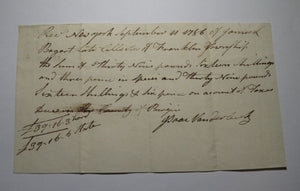 Rec'd New york September 11 1786 of James
Bogert Late Collector of Franklin Township
the sum of Thirty Nine pounds Sixteen Shillings
and three pence in specie and Thirty Nine pounds
Sixteen Shillings & Six pence on account of Taxes
County of
£39-16-3
£39-16-6
Isaac Vanderbeek